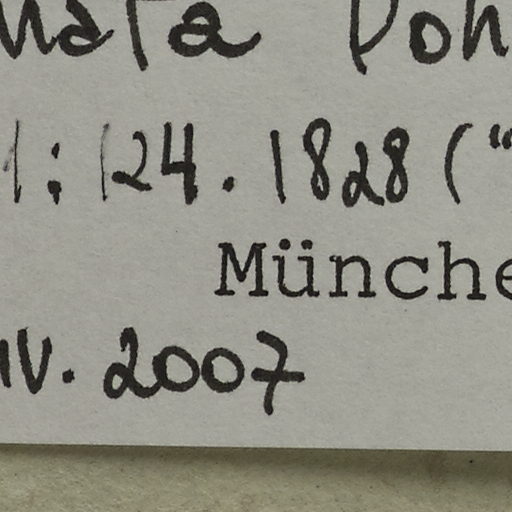 nata Poh
1: 124. 1828 ("
Münche
IV. 2007